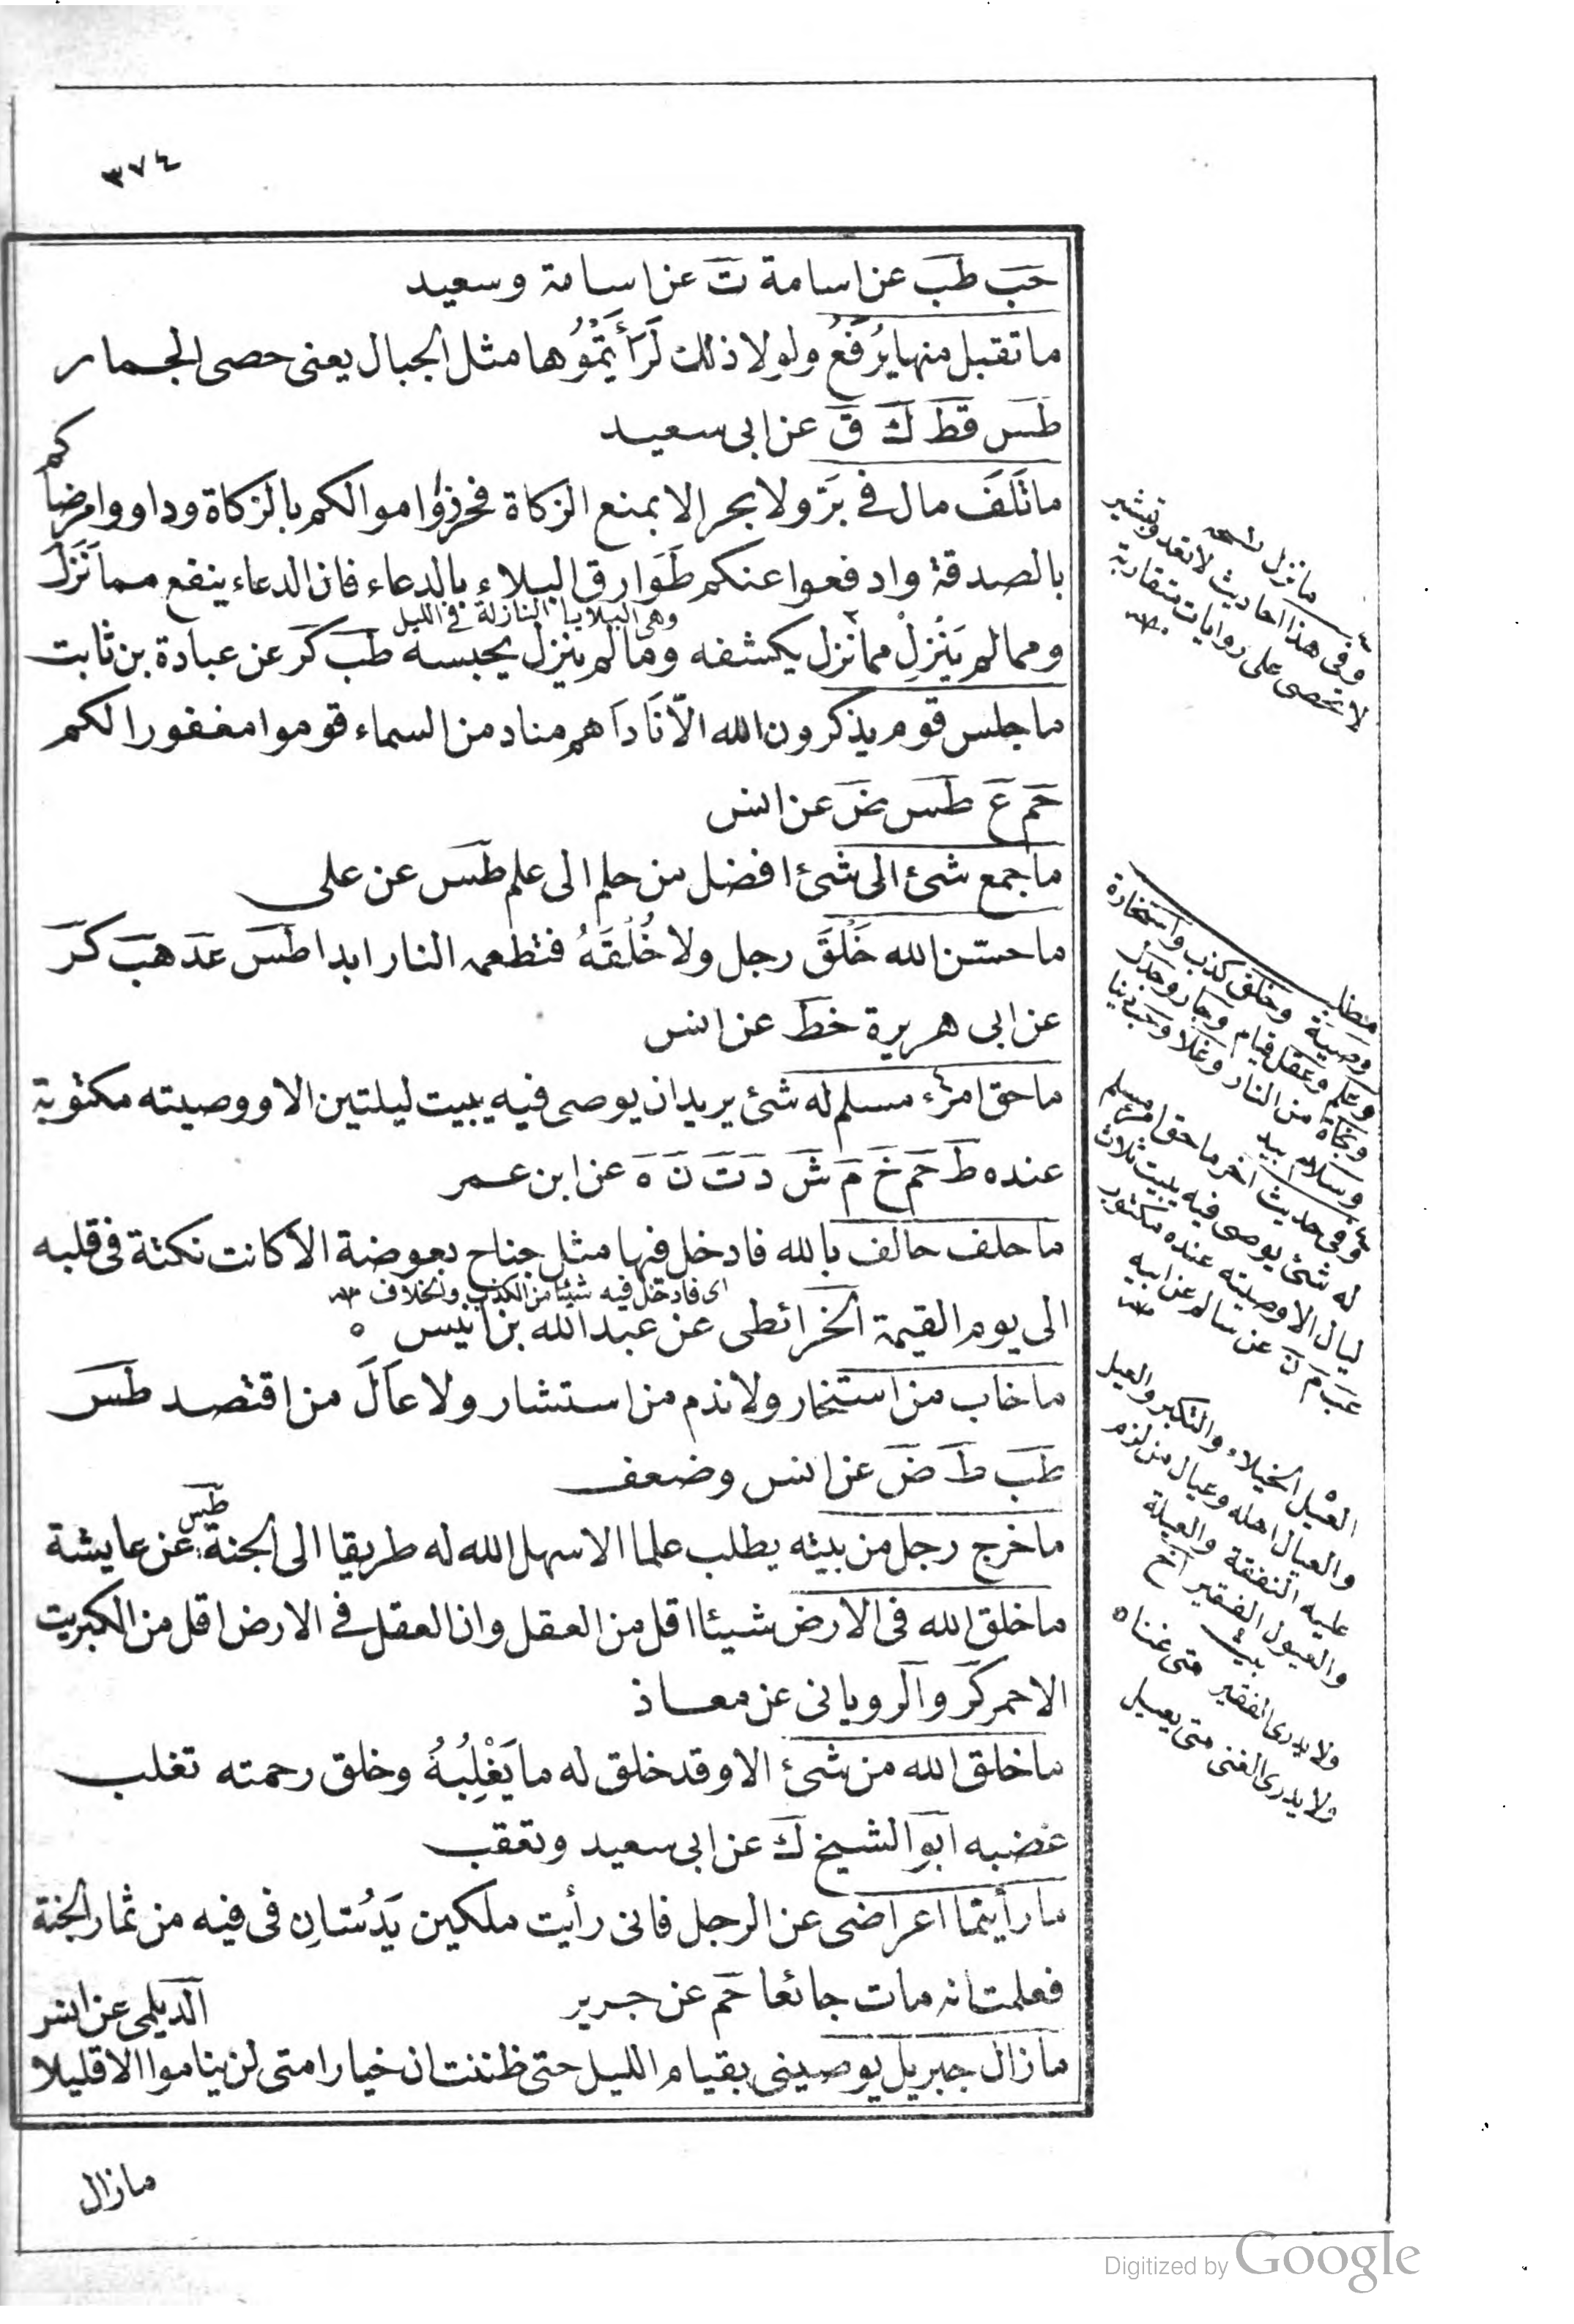 ٣٧٤
حب طب عن اسامة ت عن اسامة وسعيد
ما تقبل منها يُرْفَعُ ولولا ذلك لَرَأَيْتُمُوُها مثل الجبال يعنى حصى الجمار
طس قط ك ق عن ابى سعيد
ما تَلَفَ مال فى بَرّ ولا بحر الا بمنع الزكاة فحرّزوا اموالكم بالزكاة وداووا مرضاكم
بالصدقة وادفعوا عنكم طَوَارق البلاء بالدعاء فان الدعاء ينفع مما نَزَلَ
وهى البلايا النازلة فى الليل
ومما لم يَنْزِلْ مما نزل يكشفه وما لم ينزل يحبسه طب كر عن عبادة بن ثابت
ما جلس قوم يذكرون الله الّا نَادَاهم مناد من السماء قوموا مغفورا لكم
حم ع طس ض عن انس
ما جمع شئ الى شئ افضل من حلم الى علم طس عن على
ما حسّن الله خَلْقَ رجل ولا خُلُقَهُ فتطعمه النار ابدا طس عد هب كر
عن ابى هريرة خط عن انس
ما حق امرء مسلم له شئ يريد ان يوصى فيه يبيت ليلتين الا ووصيته مكتوبة
عنده ط حم خ م ش د ت ن ه عن ابن عمر
ما حلف حالف بالله فادخل فيها مثل جناح بعوضة الا كانت نكتة فى قلبه
اى فادخل فيه شيئا من الكذب والخلاف
الى يوم القيمة الخرائطى عن عبد الله بن انيس ٥
ما خاب من استخار ولا ندم من استشار ولا عَالَ من اقتصد طس
طب ط ض عن انس وضعف
ما خرج رجل من بيته يطلب علما الا سهل الله له طريقا الى الجنة طس عن عايشة
ما خلق الله فى الارض شيئا اقل من العقل وان العقل فى الارض اقل من الكبريت
الاحمر كر والرويانى عن معاذ
ما خلق الله من شئ الا وقد خلق له ما يَغْلِبُهُ وخلق رحمته تغلب
غضبه ابو الشيخ ك عن ابى سعيد وتعقب
ما رأيتما اعراضى عن الرجل فانى رأيت ملكين يَدُسّانِ فى فيه من ثمار الجنة
فعلمت انه مات جائعا حم عن جرير
الديلمى عن انس
ما زال جبريل يوصينى بقيام الليل حتى ظننت ان خيار امتى لن يناموا الا قليلا
ما زال
ما نزل نسخه
وفى هذا احاديث لا تعد وتبشير
لا تحصى على روايات متقاربة
مطلب
وصية وحلف كذب واستخارة
وعلم وعقل قيام وجار وجدل
ونجاة من النار وغلا وحب دنيا
وسلام بيد
وفى حديث اخر ما حق امرء مسلم
له شئ يوصى فيه يبيت ثلاث
ليال الا وصيته عنده مكتوب
عب م ن عن سالم عن ابيه
العيل الخيلاء والتكبر والعيل
والعيال اهله وعيال من لزم
عليه النفقة والعيلة
والعيول الفقير اخ
بيت
ولا يدرى الفقير متى غناه
ولا يدرى الغنى متى يعيل
Digitized by Google